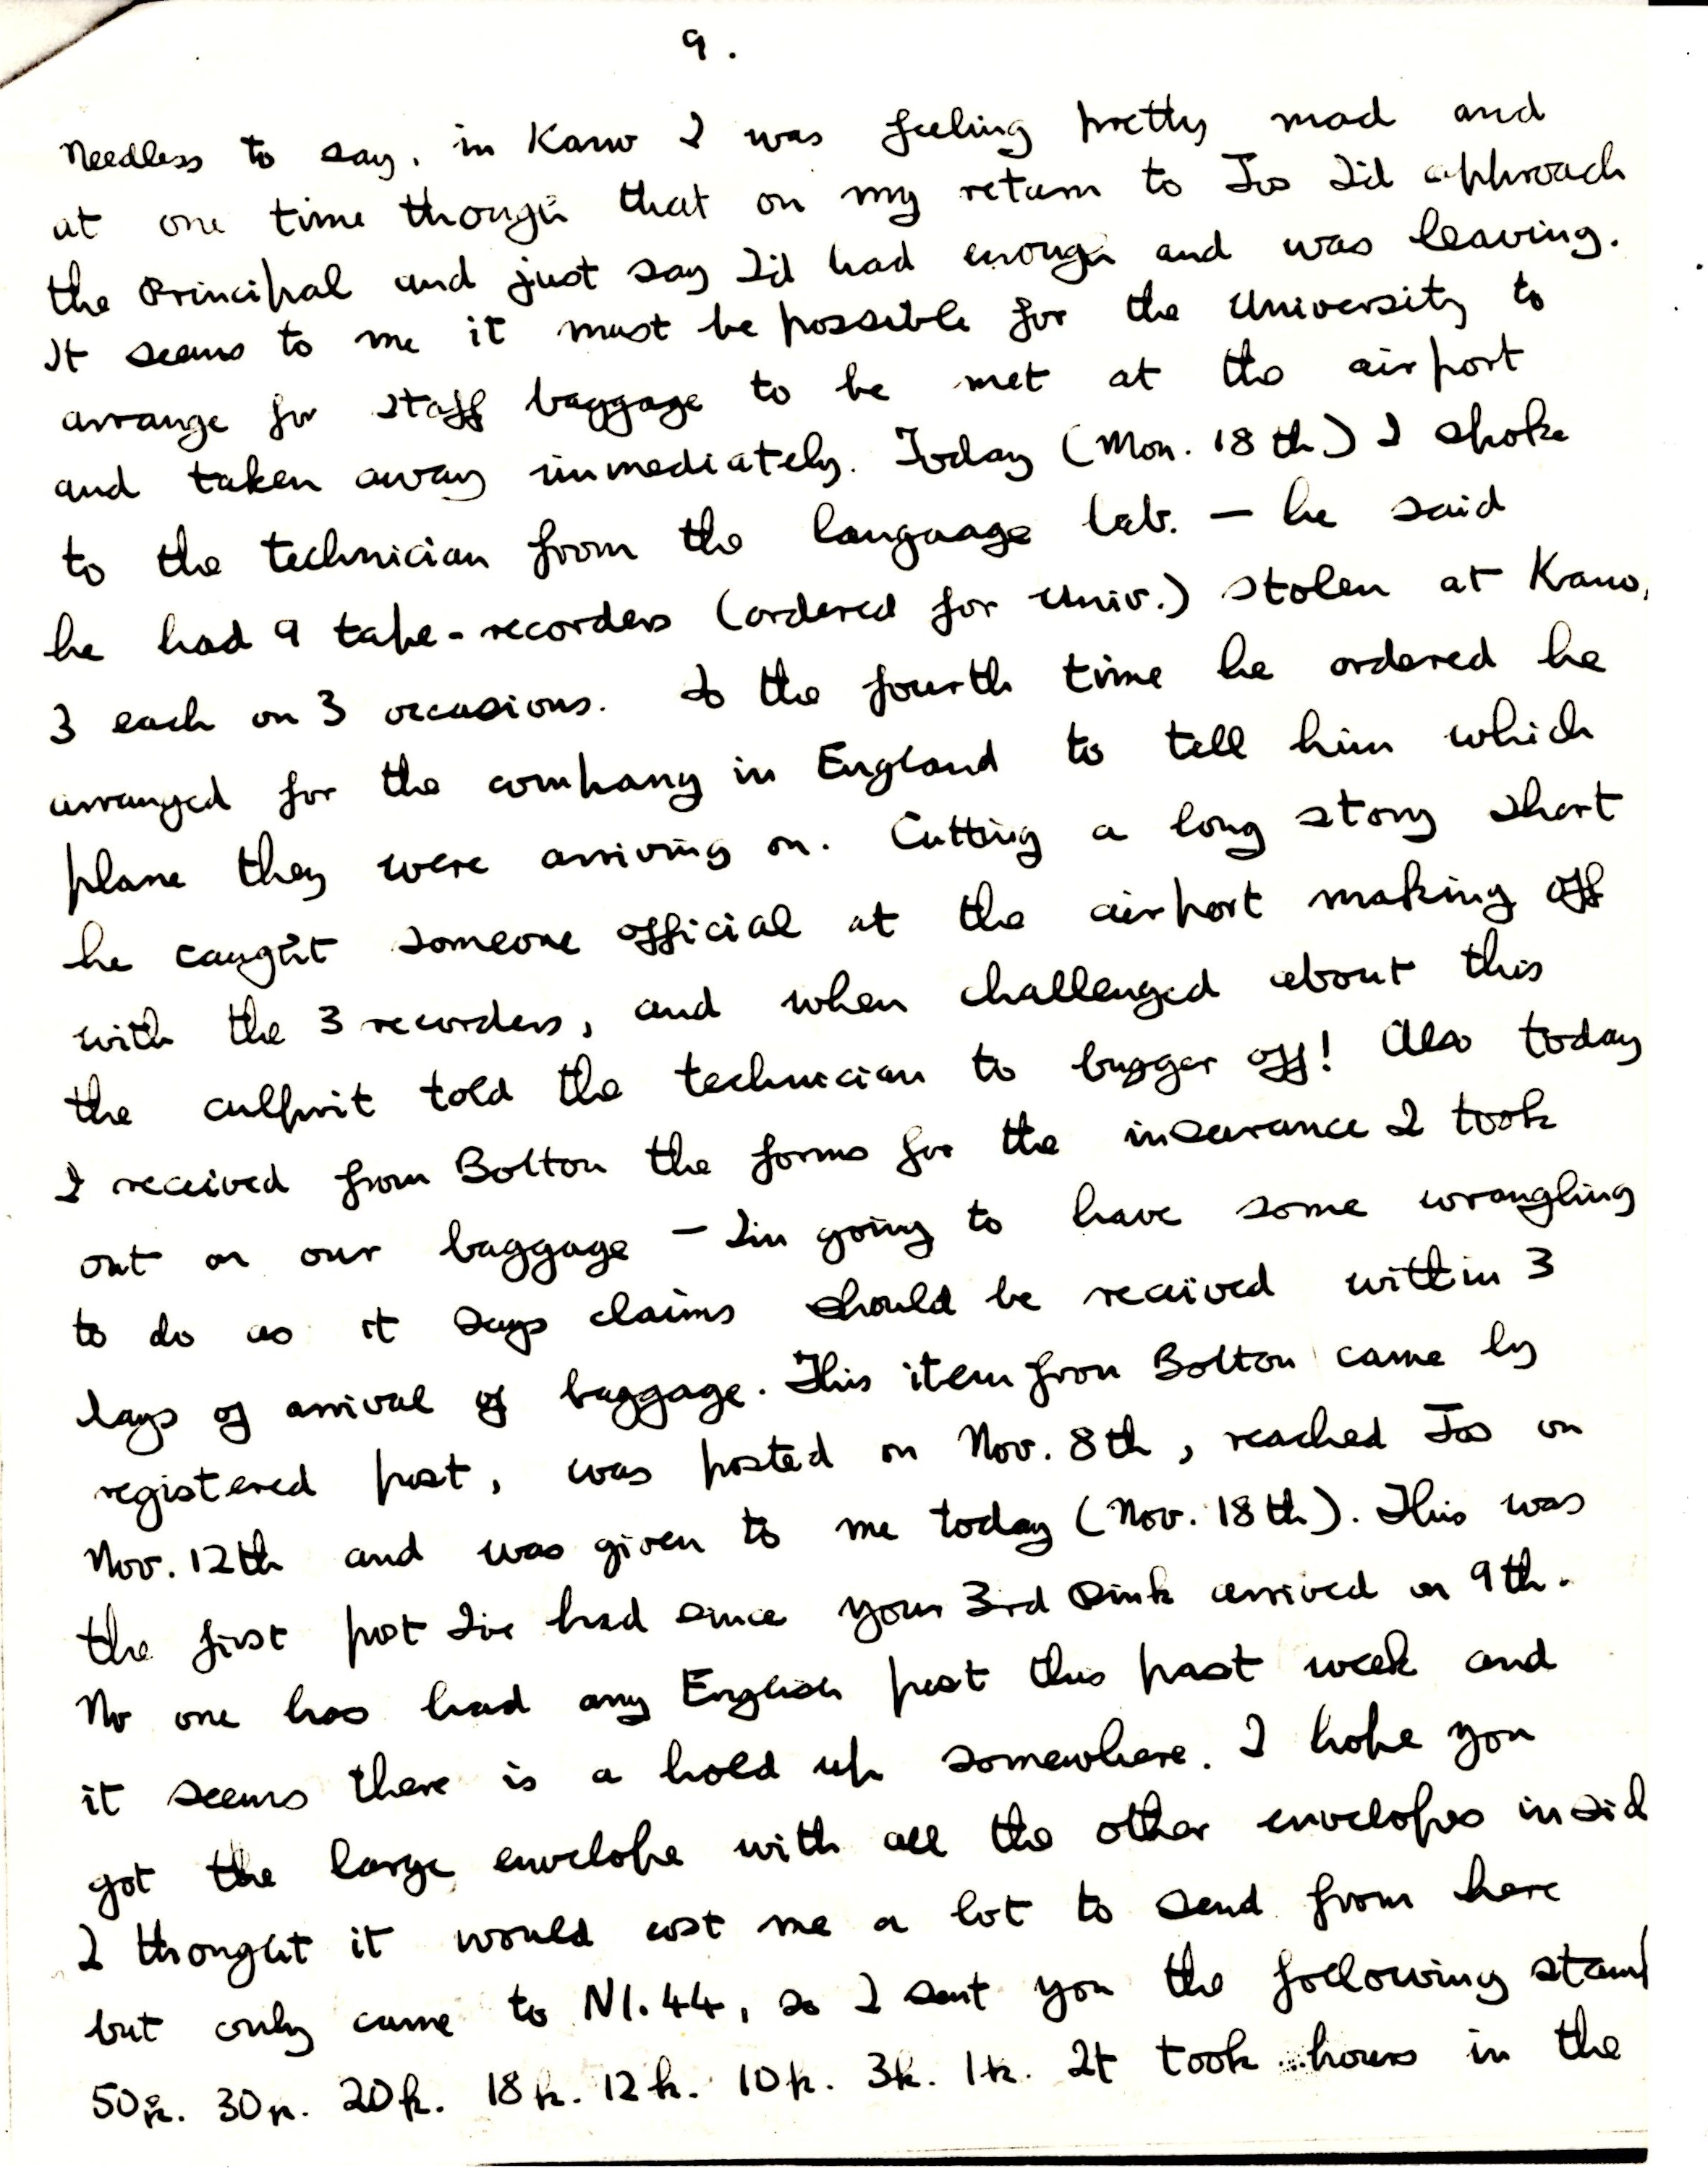 9.
Needless to say, in Kano I was feeling pretty mad and
at one time though that on my return to Jos I'd approach
the Principal and just say I'd had enough and was leaving.
It seems to me it must be possible for the University to
arrange for staff baggage to be met at the airport
and taken away immediately. Today (Mon. 18th) I spoke
to the technician from the language lab. — he said
he had 9 tape-recorders (ordered for Univ.) stolen at Kano,
3 each on 3 occasions. So the fourth time he ordered he
arranged for the company in England to tell him which
plane they were arriving on. Cutting a long story short
he caught someone official at the airport making off
with the 3 recorders, and when challenged about this
the culprit told the technician to bugger off! Also today
I received from Bolton the forms for the insurance I took
out on our baggage — I'm going to have some wrangling
to do as it says claims should be received within 3
days of arrival of baggage. This item from Bolton came by
registered post, was posted on Nov. 8th, reached Jos on
Nov. 12th and was given to me today (Nov. 18th). This was
the first post I've had since your 3rd Pink arrived on 9th.
No one has had any English post this past week and
it seems there is a hold up somewhere. I hope you
got the large envelope with all the other envelopes insid
I thought it would cost me a lot to send from here
but only came to N1.44, so I sent you the following stamp
50k. 30k. 20k. 18k. 12k. 10k. 3k. 1k. It took hours in the